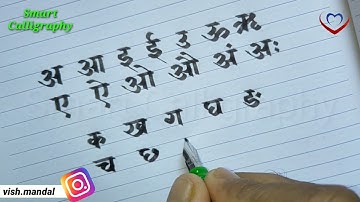 Smart
Calligraphy
अ आ इ ई उ ऊ ऋ
ए ऐ ओ औ अं अः
क ख ग घ ङ
च छ
vish.mandal